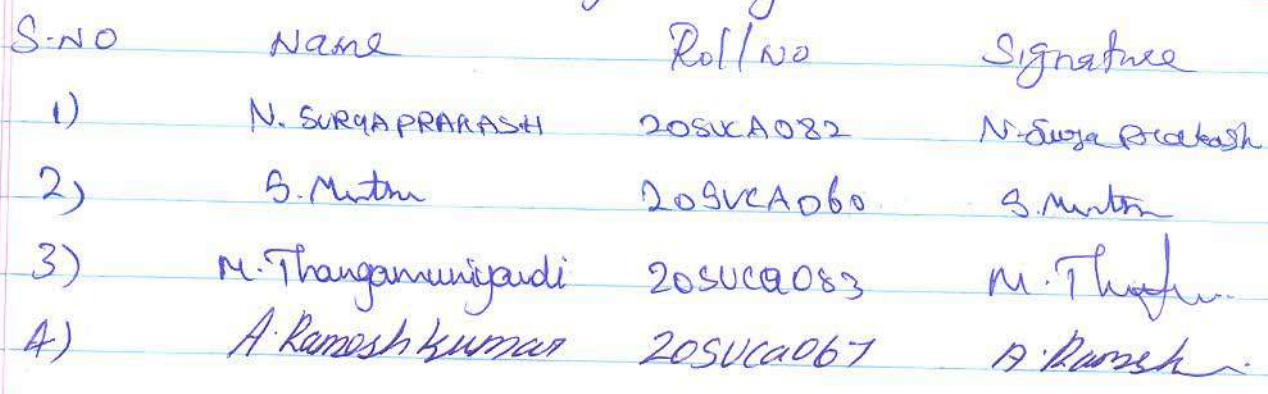 S.NO Name Roll NO Signature
1) N. SURYAPRAKASH 20SUCA082 N. Surya prakash
2) S. Muthu 20SUCA060 S. Muthu
3) M. Thangamuniyandi 20SUCA083 M.
4) A. Ramesh kumar 20SUCA067 A. Ramesh